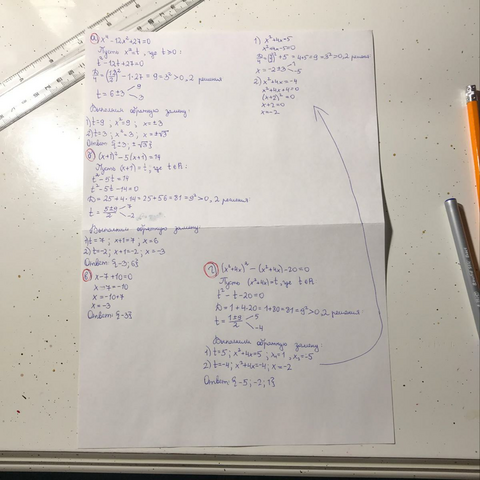 а) x⁴-12x²+27=0
Пусть x²=t, где t>0:
t²-12t+27=0
D/4=(12/2)²-1·27=9=3²>0, 2 решения
t=6±3 9
3
Выполним обратную замену:
1) t=9; x²=9; x=±3
2) t=3; x²=3; x=±√3
Ответ {±3; ±√3}
б) (x+1)²-5(x+1)=14
Пусть (x+1)=t, где t∈R:
t²-5t=14
t²-5t-14=0
D=25+4·14=25+56=81=9²>0, 2 решения
t=5±9/2 7
-2
Выполним обратную замену:
1) t=7; x+1=7; x=6
2) t=-2; x+1=-2; x=-3
Ответ {-3; 6}
в) x-7+10=0
x-7=-10
x=-10+7
x=-3
Ответ {-3}
г) (x²+4x)²-(x²+4x)-20=0
Пусть (x²+4x)=t, где t∈R
t²-t-20=0
D=1+4·20=1+80=81=9²>0, 2 решения
t=1±9/2 5
-4
Выполним обратную замену:
1) t=5; x²+4x=5; x₁=1; x₂=-5
2) t=-4; x²+4x=-4; x=-2
Ответ {-5; -2; 1}
1) x²+4x=5
x²+4x-5=0
D/4=(4/2)²+5=4+5=9=3²>0, 2 решения
x=-2±3 1
-5
2) x²+4x=-4
x²+4x+4=0
(x+2)²=0
x+2=0
x=-2